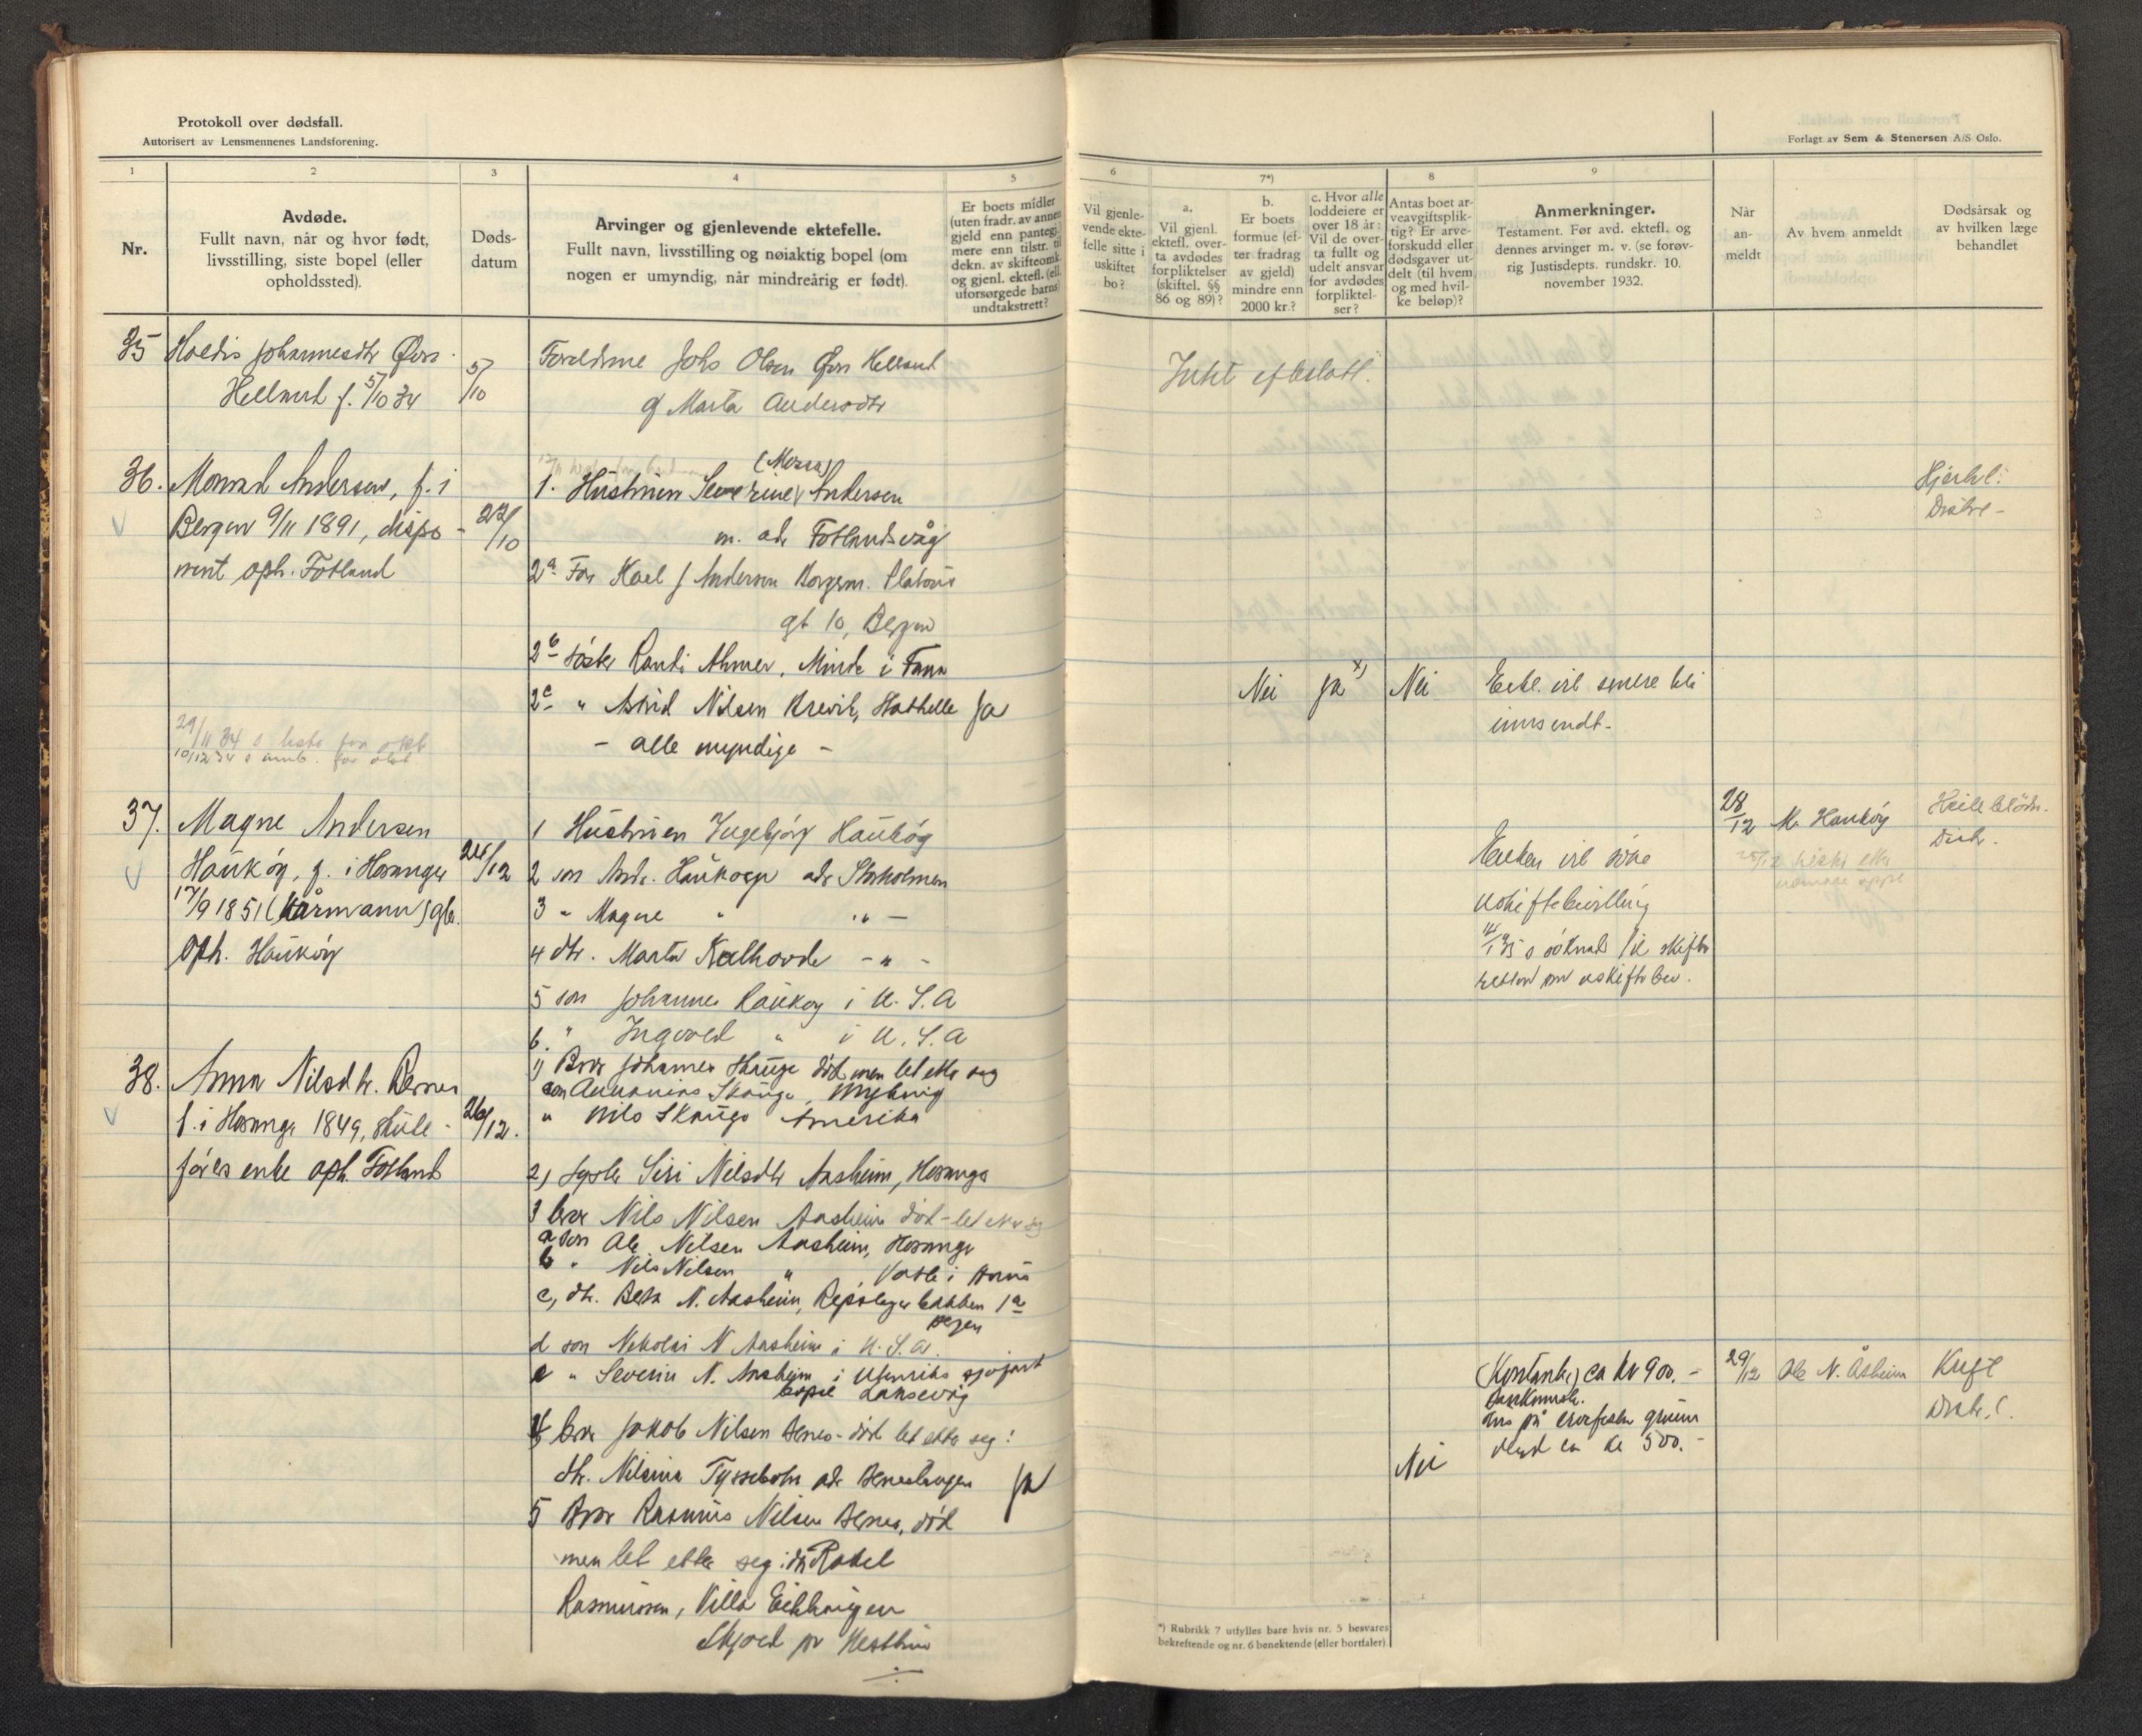 Protokoll over dødsfall.
Autorisert av Lensmennenes Landsforening.
Forlagt av Sem & Stenersen A/S Oslo.
1
2
3
4
5
6
7*)
8
9
Nr.
Avdøde.
Fullt navn, når og hvor født,
livsstilling, siste bopel (eller
opholdssted).
Døds-
datum
Arvinger og gjenlevende ektefelle.
Fullt navn, livsstilling og nøiaktig bopel (om
nogen er umyndig, når mindreårig er født).
Er boets midler
(uten fradr. av annen
gjeld enn pantegj.)
mere enn tilstr. til
dekn. av skifteomk.
og gjenl. ektefl. (ell.
uforsørgede barns)
undtakstrett?
Vil gjenle-
vende ekte-
felle sitte i
uskiftet
bo?
a.
Vil gjenl.
ektefl. over-
ta avdødes
forpliktelser
(skiftel. §§
86 og 89)?
b.
Er boets
formue (ef-
ter fradrag
av gjeld)
mindre enn
2000 kr.?
c. Hvor alle
loddeiere er
over 18 år:
Vil de over-
ta fullt og
udelt ansvar
for avdødes
forpliktel-
ser?
Antas boet ar-
veavgiftsplik-
tig? Er arve-
forskudd eller
dødsgaver ut-
delt (til hvem
og med hvil-
ke beløp)?
Anmerkninger.
Testament. Før avd. ektefl. og
dennes arvinger m. v. (se forøv-
rig Justisdepts. rundskr. 10.
november 1932.
Når
an-
meldt
Av hvem anmeldt
Dødsårsak og
av hvilken læge
behandlet
35 Johannesdtr
f. 5/10 34
5/10
Foreldrene Johs Olsen
og Marta Andersdtr
Intet efterlatt.
36. Monrad Andersen, f. i
Bergen 9/11 1891, dispo-
nent oph. Fotland
22/10
1. Hustruen Severine Andersen
m. adr Fotlandsvåg
2a Far Karl J Andersen
gt 10, Bergen
2b søster Randi Ahmer, Minde i Fana
2c " Astrid Nilsen Brevik, Hathelle Ja
- alle myndige -
Nei Ja x) Nei
Erkl. vil senere bli
innsendt.
37. Magne Andersen
Haukøy, f. i Hosanger
17/9 1851 (kårmann) gbr.
oph. Haukøy
24/12
1 Hustruen Ingebjørg Haukøy
2 son Andr. Haukøy adr Storholmen
3 " Magne " " -
4 dtr. Marta Kalhovde - " -
5 son Johannes Haukøy i U.S.A
6. " Ingvald " i U.S.A
Enken vil søke
uskiftebevilling
14/1 35 s søknad til skifte
retten om uskiftebev.
28/12 M. Haukøy
38. Anna Nilsdtr. Bernes
f. i Hosanger 1849,
enke oph. Fotland
26/12.
1) Bror Johannes Skauge død men let etter seg
son Skauge,
" Nils Skauge Amerika
2) Syster Siri Nilsdtr Aasheim, Hosanger
3 bror Nils Nilsen Aasheim død - let etter seg
a son Ole Nilsen Aasheim, Hosanger
b " Nils Nilsen " i
c, dtr. Berta N. Aasheim, Repslagerbakken 1a
Bergen
d son Nikolai N Aasheim i U.S.A.
e " Severin N. Aasheim i utenriks sjøfart
bopel Laksevåg
4 bror Jakob Nilsen Bernes - død let etter seg:
dtr. Nilsina Tyssebotn adr Ja
5 Bror Rasmus Nilsen Bernes, død
men let etter seg: dtr Rakel
Rasmussen, Villa
Skjold pr Nesttun
Nei
(Kontanter) ca kr 900.-
Hus på bortfestet grunn
verd ca kr 500.-
29/12 Ole N. Åsheim
Kreft
*) Rubrikk 7 utfylles bare hvis nr. 5 besvares
bekreftende og nr. 6 benektende (eller bortfaler)